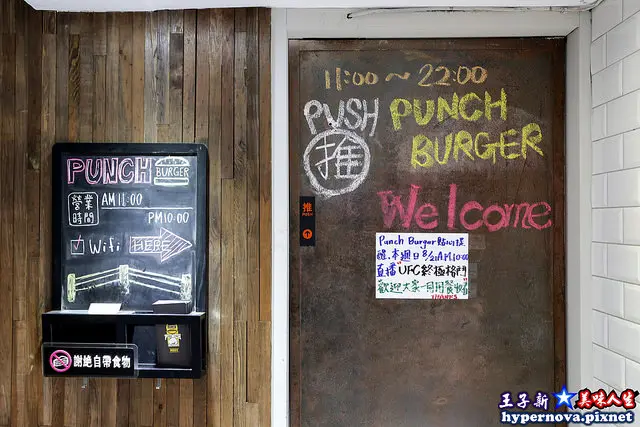 11:00~22:00
PUSH
推
PUNCH
BURGER
Welcome
推
PUSH
Punch Burger貼心提
醒.本週日8/2 AM10:00
直播"UFC終極格鬥"
歡迎大家一同用餐觀看
THANKS
PUNCH
BURGER
營業
時間
AM11:00
PM10:00
Wifi
HERE
謝絕自帶食物
王子新★美味人生
hypernova.pixnet